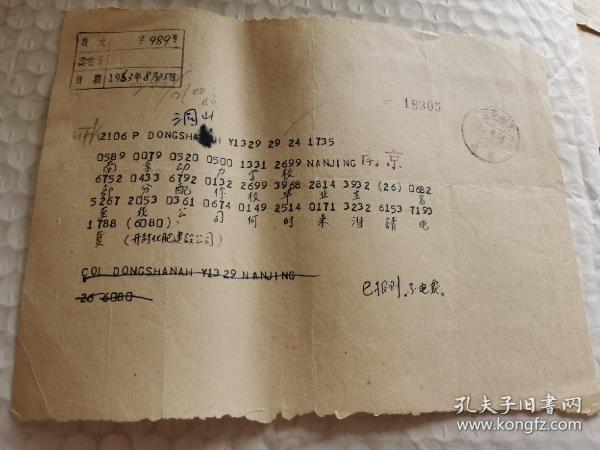 收文 字989号
日期 1963年8月25日
洞山
18305
2106 P DONGSHANAH Y1329 29 24 1735
0589 0079 0520 0500 1331 2699 NANJING 南京
南京动力学校
6752 0433 6792 0132 2699 3968 2814 3932 (26) 0682
部分配你校毕业生 名
5267 2053 0361 0674 0149 2514 0171 3232 6153 7193
至我公司何时来淮請电
1788 (6080).
复 (开封化肥建設公司)
COL DONGSHANAH Y1329 NANJING
26 6080
已报到。不电复。
孔夫子旧书网
www.kongfz.com